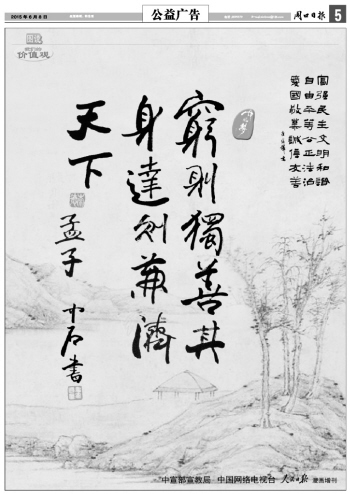 2015年6月8日
公益广告
周口日报
5
价值观
富强民主文明和諧
自由平等公正法治
愛國敬業誠信友善
窮则獨善其
身達则兼濟
天下
孟子
中石書
中宣部宣教局 中国网络电视台 人民日报 漫画增刊